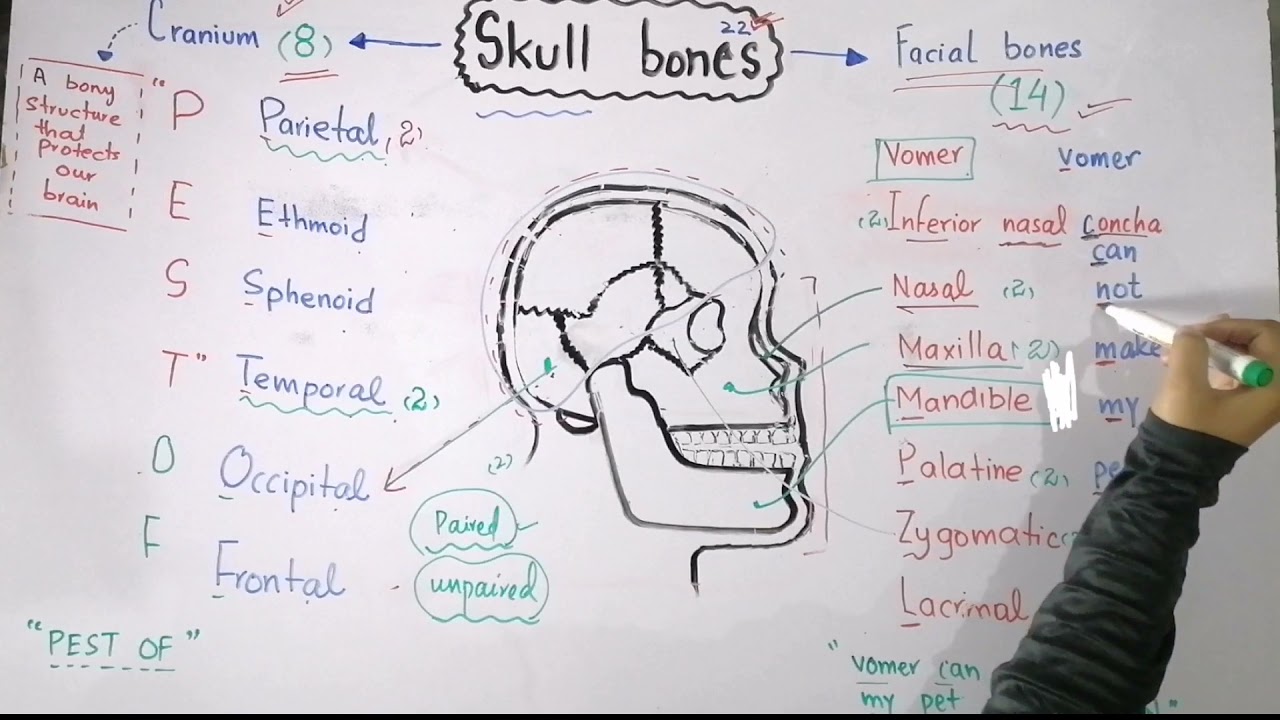 Skull bones 22
Cranium (8)
A bony
structure
that
protects
our
brain
"P
E
S
T"
O
F
Parietal, 2)
Ethmoid
Sphenoid
Temporal (2)
Occipital
Frontal
(2)
Paired
unpaired
"PEST OF"
Facial bones
(14)
Vomer vomer
(2) Inferior nasal concha
can
Nasal (2) not
Maxilla (2) make
Mandible my
Palatine (2)
Zygomatic
Lacrimal
"vomer can
my pet